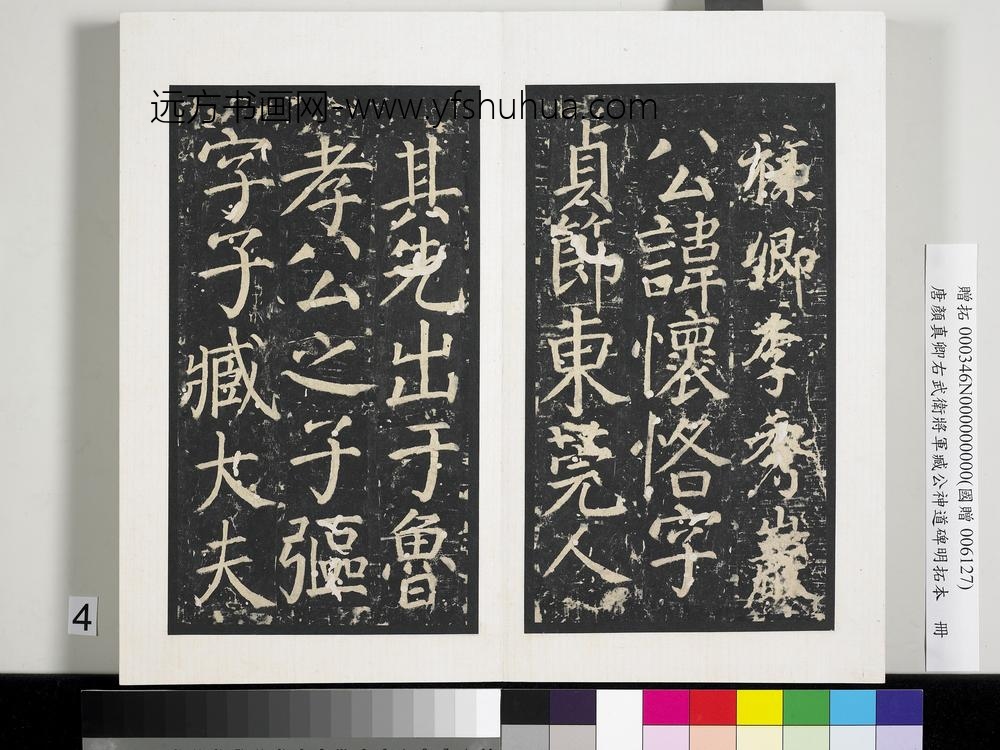 远方书画网-www.yfshuhua.com
卿李秀巖
公諱懷恪字
貞節東莞人
其先出于魯
孝公之子彄
字子臧大夫
贈拓 000346N000000000(國贈 006127)
唐顏真卿右武衛將軍臧公神道碑明拓本 冊
4